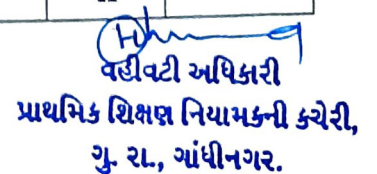 વહીવટી અધિકારી
પ્રાથમિક શિક્ષણ નિયામકની કચેરી,
ગુ. રા., ગાંધીનગર.